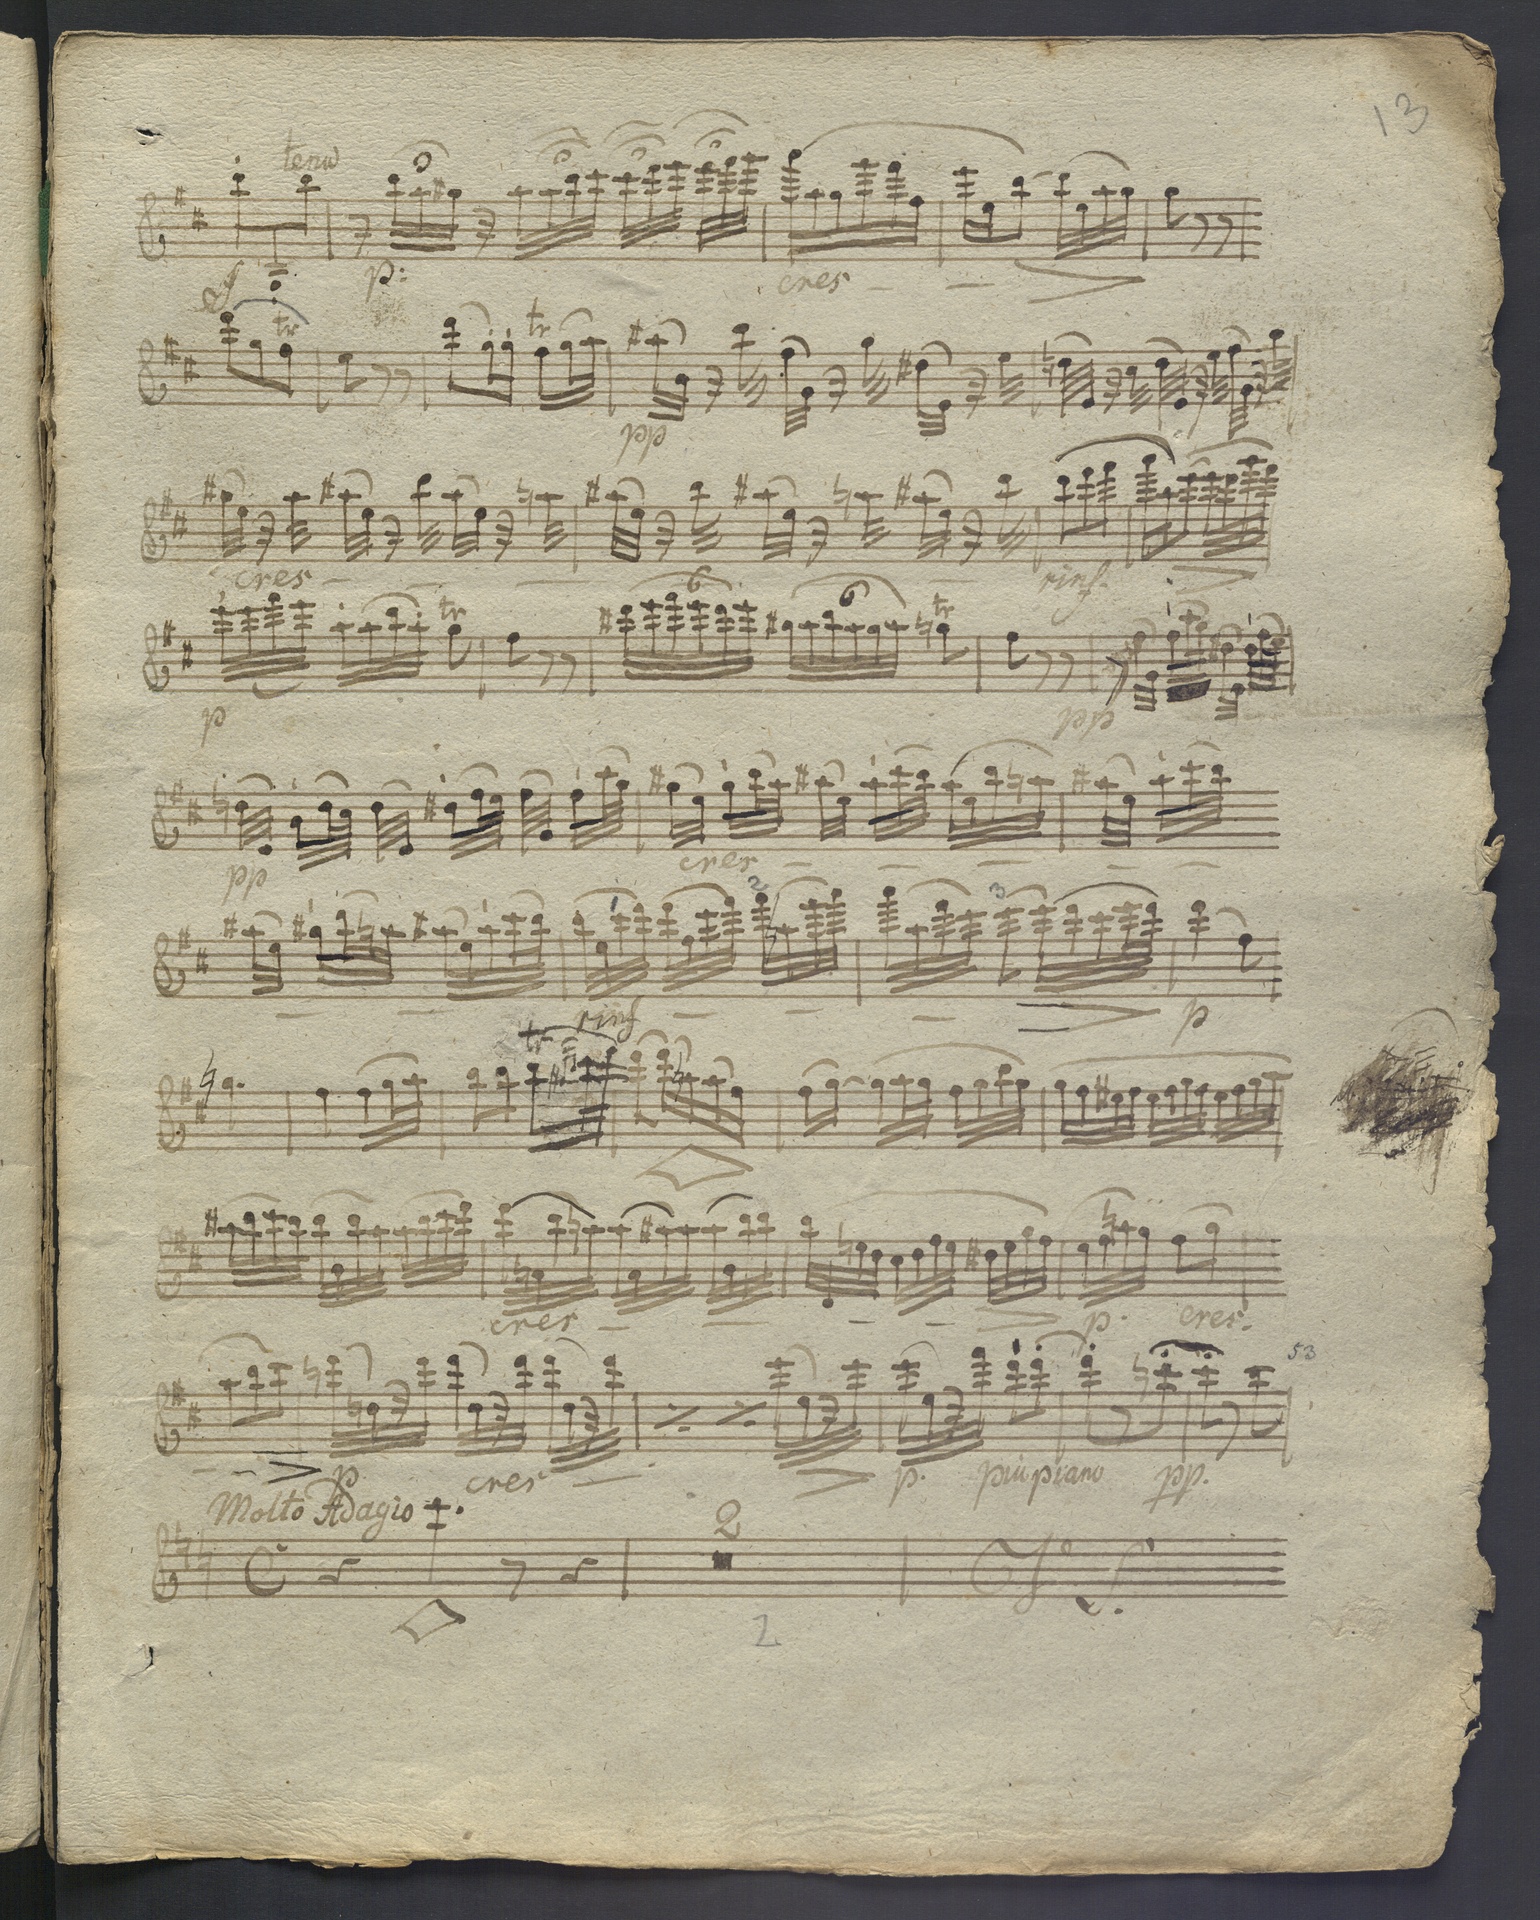 13
tenu
sf p: cres
tr tr
pp
cres rinf.
6 6 tr tr
p pp
pp cres
2 3
rinf p
tr
cres p. cres.
53
p cres p. più piano pp.
Molto Adagio
2
C
2